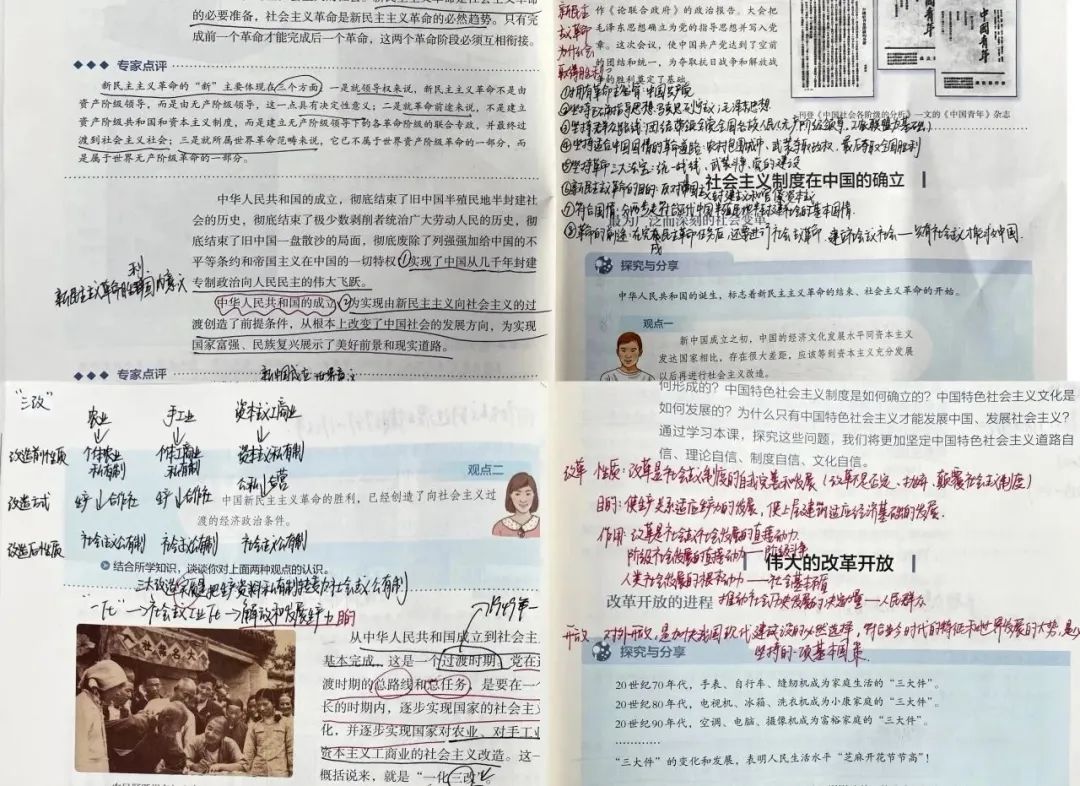 的必要准备，社会主义革命是新民主主义革命的必然趋势。只有完
成前一个革命才能完成后一个革命，这两个革命阶段必须互相衔接。
专家点评
新民主主义革命的“新”主要体现在三个方面：一是就领导权来说，新民主主义革命不是由
资产阶级领导，而是由无产阶级领导，这一点具有决定性意义；二是就革命前途来说，不是建立
资产阶级共和国和资本主义制度，而是建立无产阶级领导下的各革命阶级的联合专政，并最终过
渡到社会主义社会；三是就所属世界革命范畴来说，它已不属于世界资产阶级革命的一部分，而
是属于世界无产阶级革命的一部分。
中华人民共和国的成立，彻底结束了旧中国半殖民地半封建社
会的历史，彻底结束了极少数剥削者统治广大劳动人民的历史，彻
底结束了旧中国一盘散沙的局面，彻底废除了列强强加给中国的不
平等条约和帝国主义在中国的一切特权，①实现了中国从几千年封建
专制政治向人民民主的伟大飞跃。
新民主主义革命胜利国内意义
中华人民共和国的成立，②为实现由新民主主义向社会主义的过
渡创造了前提条件，从根本上改变了中国社会的发展方向，为实现
国家富强、民族复兴展示了美好前景和现实道路。
专家点评
新中国成立世界意义
作《论联合政府》的政治报告。大会把
毛泽东思想确立为党的指导思想并写入党
章。这次会议，使中国共产党达到了空前
的团结和统一，为夺取抗日战争和解放战
争的胜利奠定了基础。
新民主
主义革命
为什么会
取得胜利？
中国青年
中国青年
刊登《中国社会各阶级的分析》一文的《中国青年》杂志
①拥有革命主心骨：中国共产党
②坚持正确指导思想：马克思列宁主义、毛泽东思想
③坚持群众路线：团结带领全党全国各族人民（无产阶级领导，工农联盟为基础）
④坚持适合中国国情的革命道路：农村包围城市，武装夺取政权，最后夺取全国胜利
⑤坚持革命三大法宝：统一战线、武装斗争、党的建设
社会主义制度在中国的确立
最为广泛而深刻的社会变革
探究与分享
中华人民共和国的诞生，标志着新民主主义革命的结束、社会主义革命的开始。
观点一
新中国成立之初，中国的经济文化发展水平同资本主义
发达国家相比，存在很大差距，应该等到资本主义充分发展
以后再进行社会主义改造。
“三改”
农业 手工业 资本主义工商业
改造前性质 个体农业私有制 个体工商业私有制 资本主义私有制
改造方式 生产合作社 生产合作社 公私合营
改造后性质 社会主义公有制 社会主义公有制 社会主义公有制
观点二
中国新民主主义革命的胜利，已经创造了向社会主义过
渡的经济政治条件。
结合所学知识，谈谈你对上面两种观点的认识。
三大改造实质是把生产资料私有制转变为社会主义公有制
“一化”→社会主义工业化→解放和发展生产力 目的
从中华人民共和国成立到社会主
基本完成，这是一个过渡时期。党在过
渡时期的总路线和总任务，是要在一个
长的时期内，逐步实现国家的社会主义
化，并逐步实现国家对农业、对手工
资本主义工商业的社会主义改造。这一
概括说来，就是“一化三改”。
何形成的？中国特色社会主义制度是如何确立的？中国特色社会主义文化是
如何发展的？为什么只有中国特色社会主义才能发展中国、发展社会主义？
通过学习本课，探究这些问题，我们将更加坚定中国特色社会主义道路自
信、理论自信、制度自信、文化自信。
改革 性质：改革是社会主义制度的自我完善和发展（改革不是否定、抛弃、颠覆社会主义制度）
目的：使生产关系适应生产力的发展，使上层建筑适应经济基础的发展。
作用：改革是社会主义社会发展的直接动力
阶级社会发展的直接动力——阶级斗争
人类社会发展的根本动力——社会基本矛盾
推动社会历史发展的决定力量——人民群众
伟大的改革开放
改革开放的进程
开放 对外开放，是加快我国现代化建设的必然选择，符合当今时代的特征和世界发展的大势，是
坚持的一项基本国策
探究与分享
20世纪70年代，手表、自行车、缝纫机成为家庭生活的“三大件”。
20世纪80年代，电视机、冰箱、洗衣机成为小康家庭的“三大件”。
20世纪90年代，空调、电脑、摄像机成为富裕家庭的“三大件”。
…………
“三大件”的变化和发展，表明人民生活水平“芝麻开花节节高”！